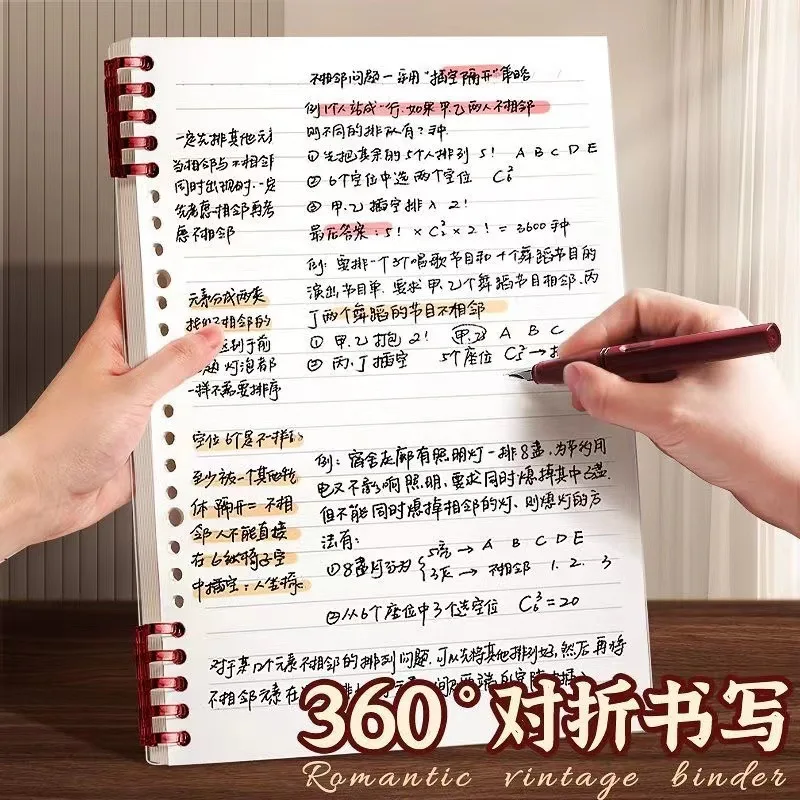 不相邻问题一采用"插空隔开"策略
例 1个人站成一行.如果甲.乙两人不相邻
则不同的排队有?种.
① 先把其余的5个人排列 5! A B C D E
② 6个空位中选两个空位 C₆²
③ 甲.乙插空排入 2!
最后答案:5! × C₆² × 2! = 3600种
例:要排一个3个唱歌节目和
个舞蹈节目的
演出节目单.要求甲.乙个舞蹈节目相邻.丙
丁两个舞蹈的节目不相邻
① 甲.乙打包 2! 甲.乙 A B C
② 丙.丁插空 5个座位 C₅² →
一定先排其他元
当相邻与不相邻
同时出现时.一定
先考虑相邻再考
虑不相邻
元素分成两类
相邻的
到于前
灯泡都
一样不需要排序
例:宿舍走廊有照明灯一排8盏,为节约用
电又不影响照明,要求同时熄掉其中3盏.
但不能同时熄掉相邻的灯,则熄灯的方
法有:
①8盏灯分为 5亮 → A B C D E
3灭 → 不相邻 1. 2. 3
②从6个座位中3个选空位 C₆³=20
空位6个是不一样
至少被一个其他物
体隔开=不相
邻人不能直接
在6
椅子空
中插空:人坐椅
对于某几个元素不相邻的排列问题.可先将其他排列好,然后再将
不相邻元素在
360°对折书写
Romantic vintage binder